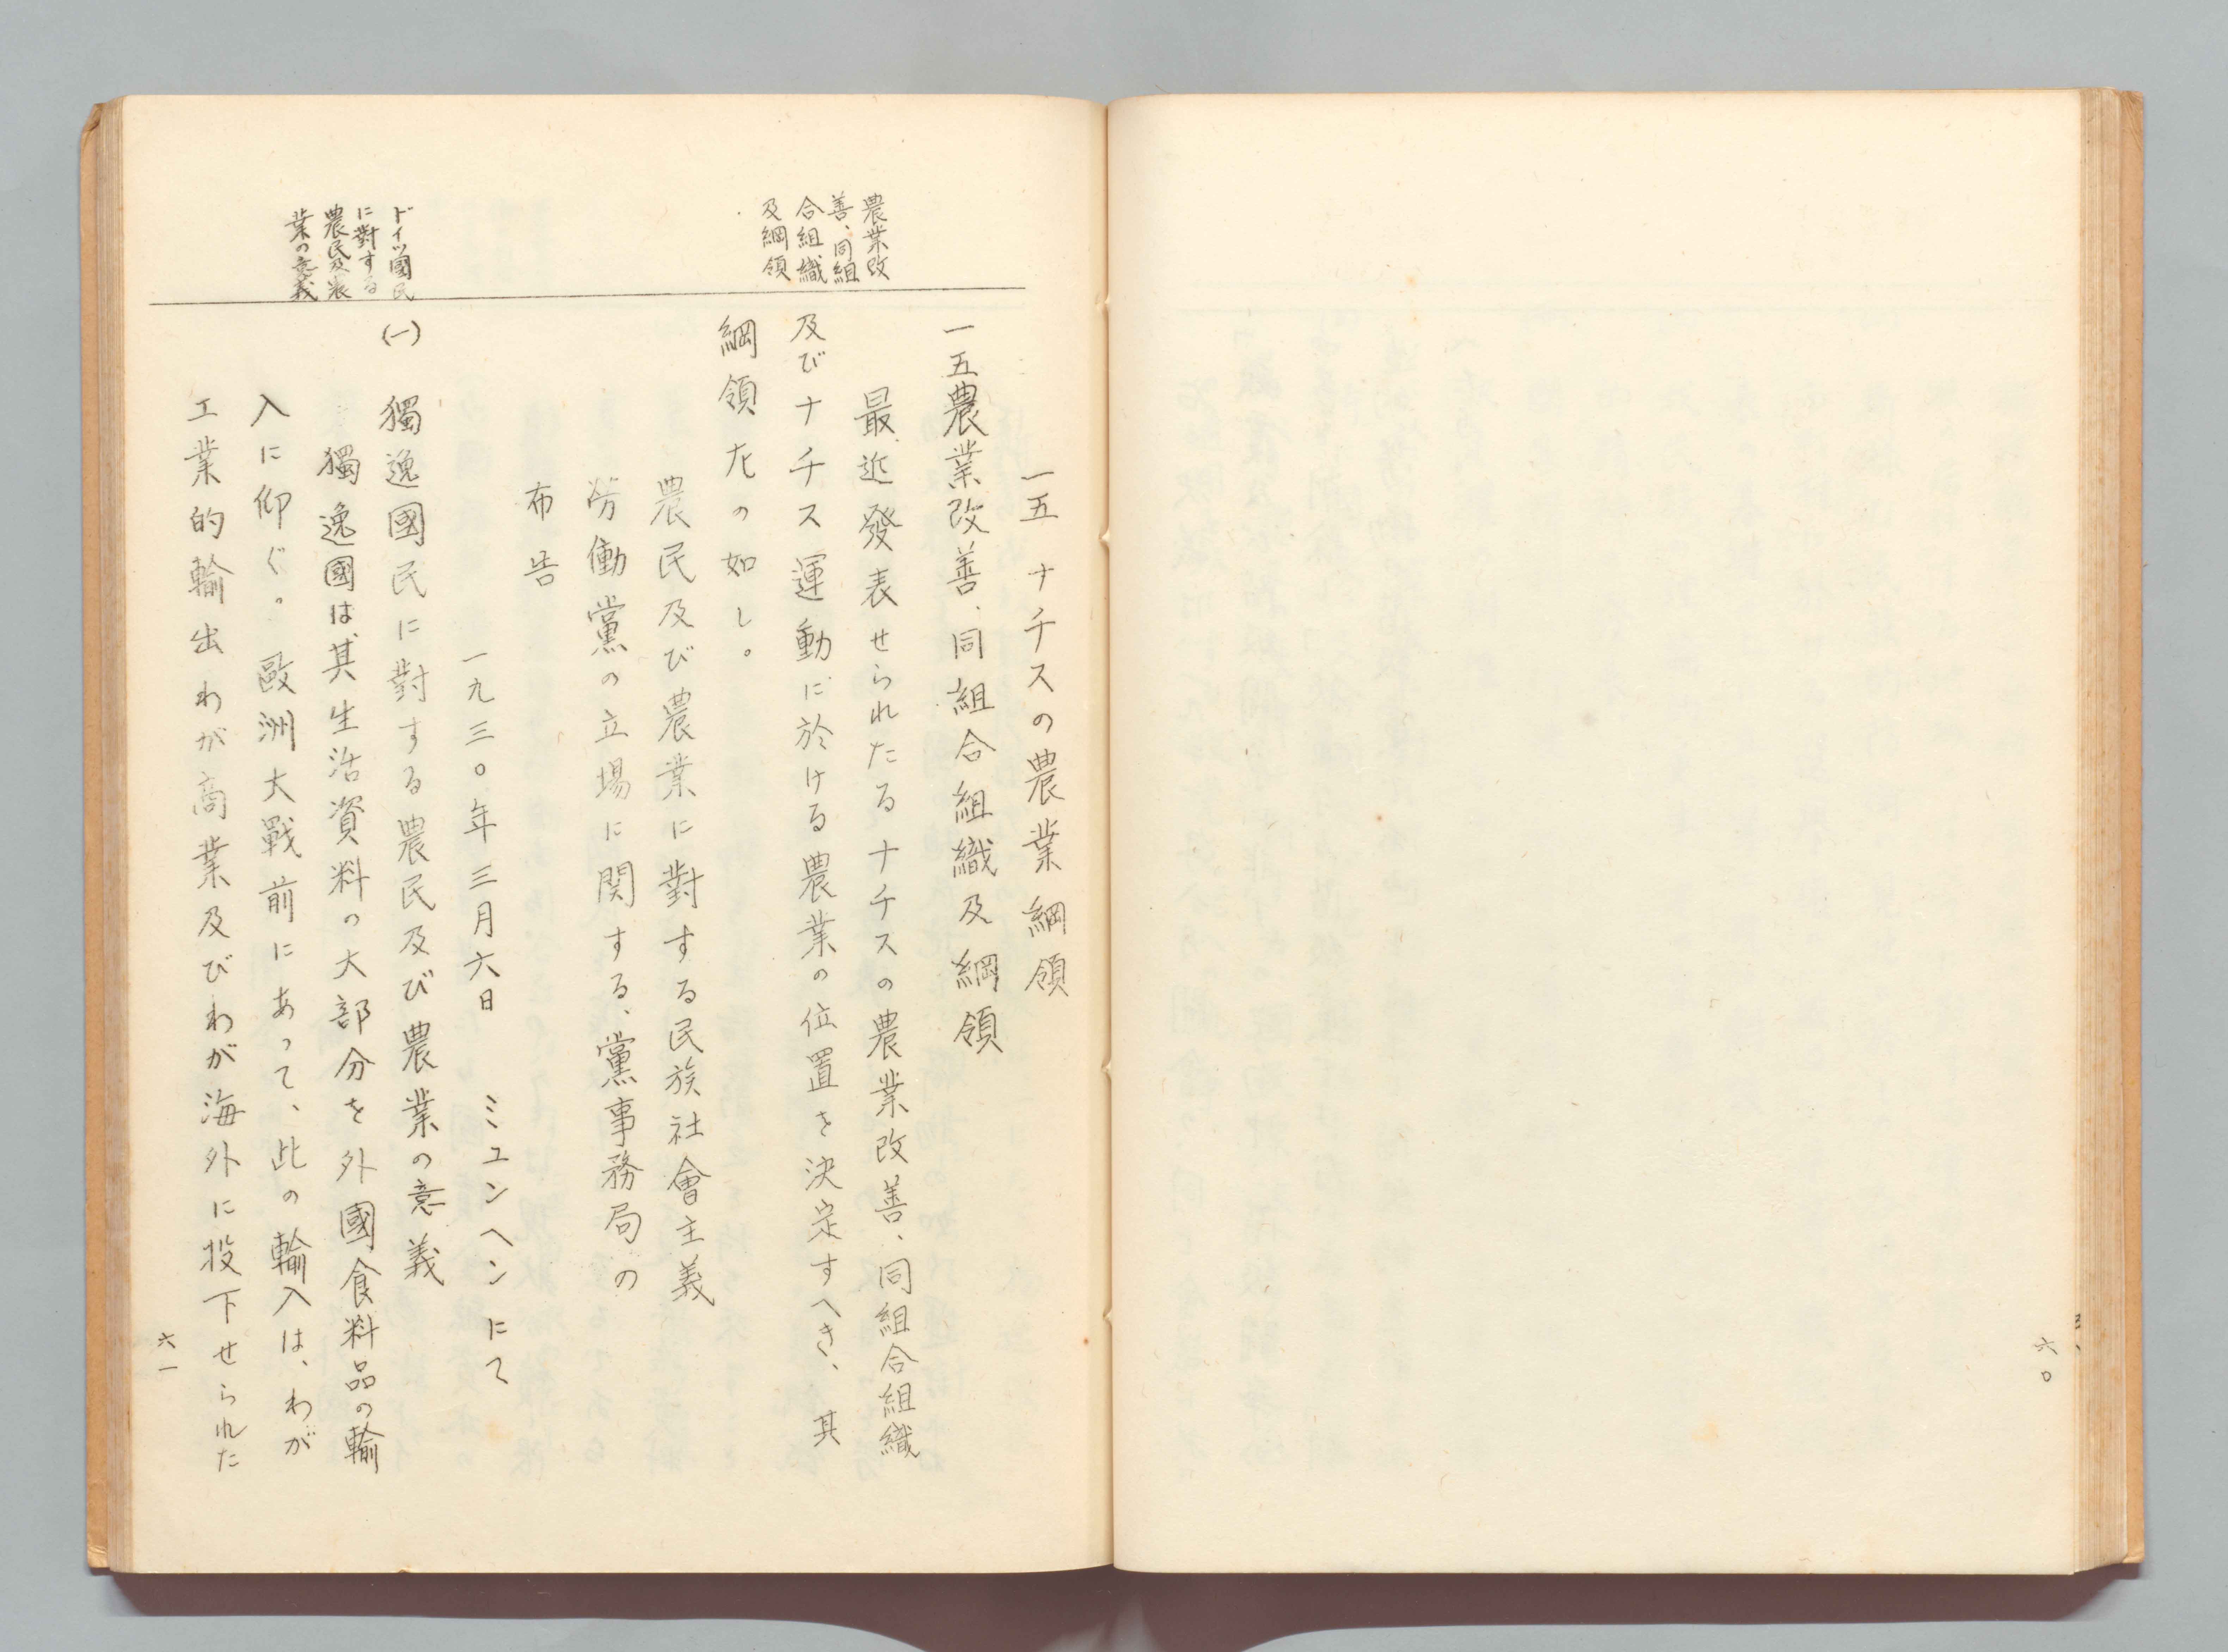 六〇
一五 ナチスの農業綱領
農業改
善、同組
合組織
及綱領
一五農業改善、同組合組織及綱領
最近發表せられたるナチスの農業改善、同組合組織
及びナチス運動に於ける農業の位置を決定すへき、其
綱領左の如し。
農民及び農業に對する民族社會主義
労働黨の立場に関する、黨事務局の
布告
一九三〇年三月六日 ミュンヘンにて
ドイツ國民
に對する
農民及農
業の意義
(一) 獨逸國民に對する農民及び農業の意義
獨逸國は其生活資料の大部分を外國食料品の輸
入に仰ぐ。歐洲大戰前にあって、此の輸入は、わが
工業的輸出わが商業及びわが海外に投下せられた
六一